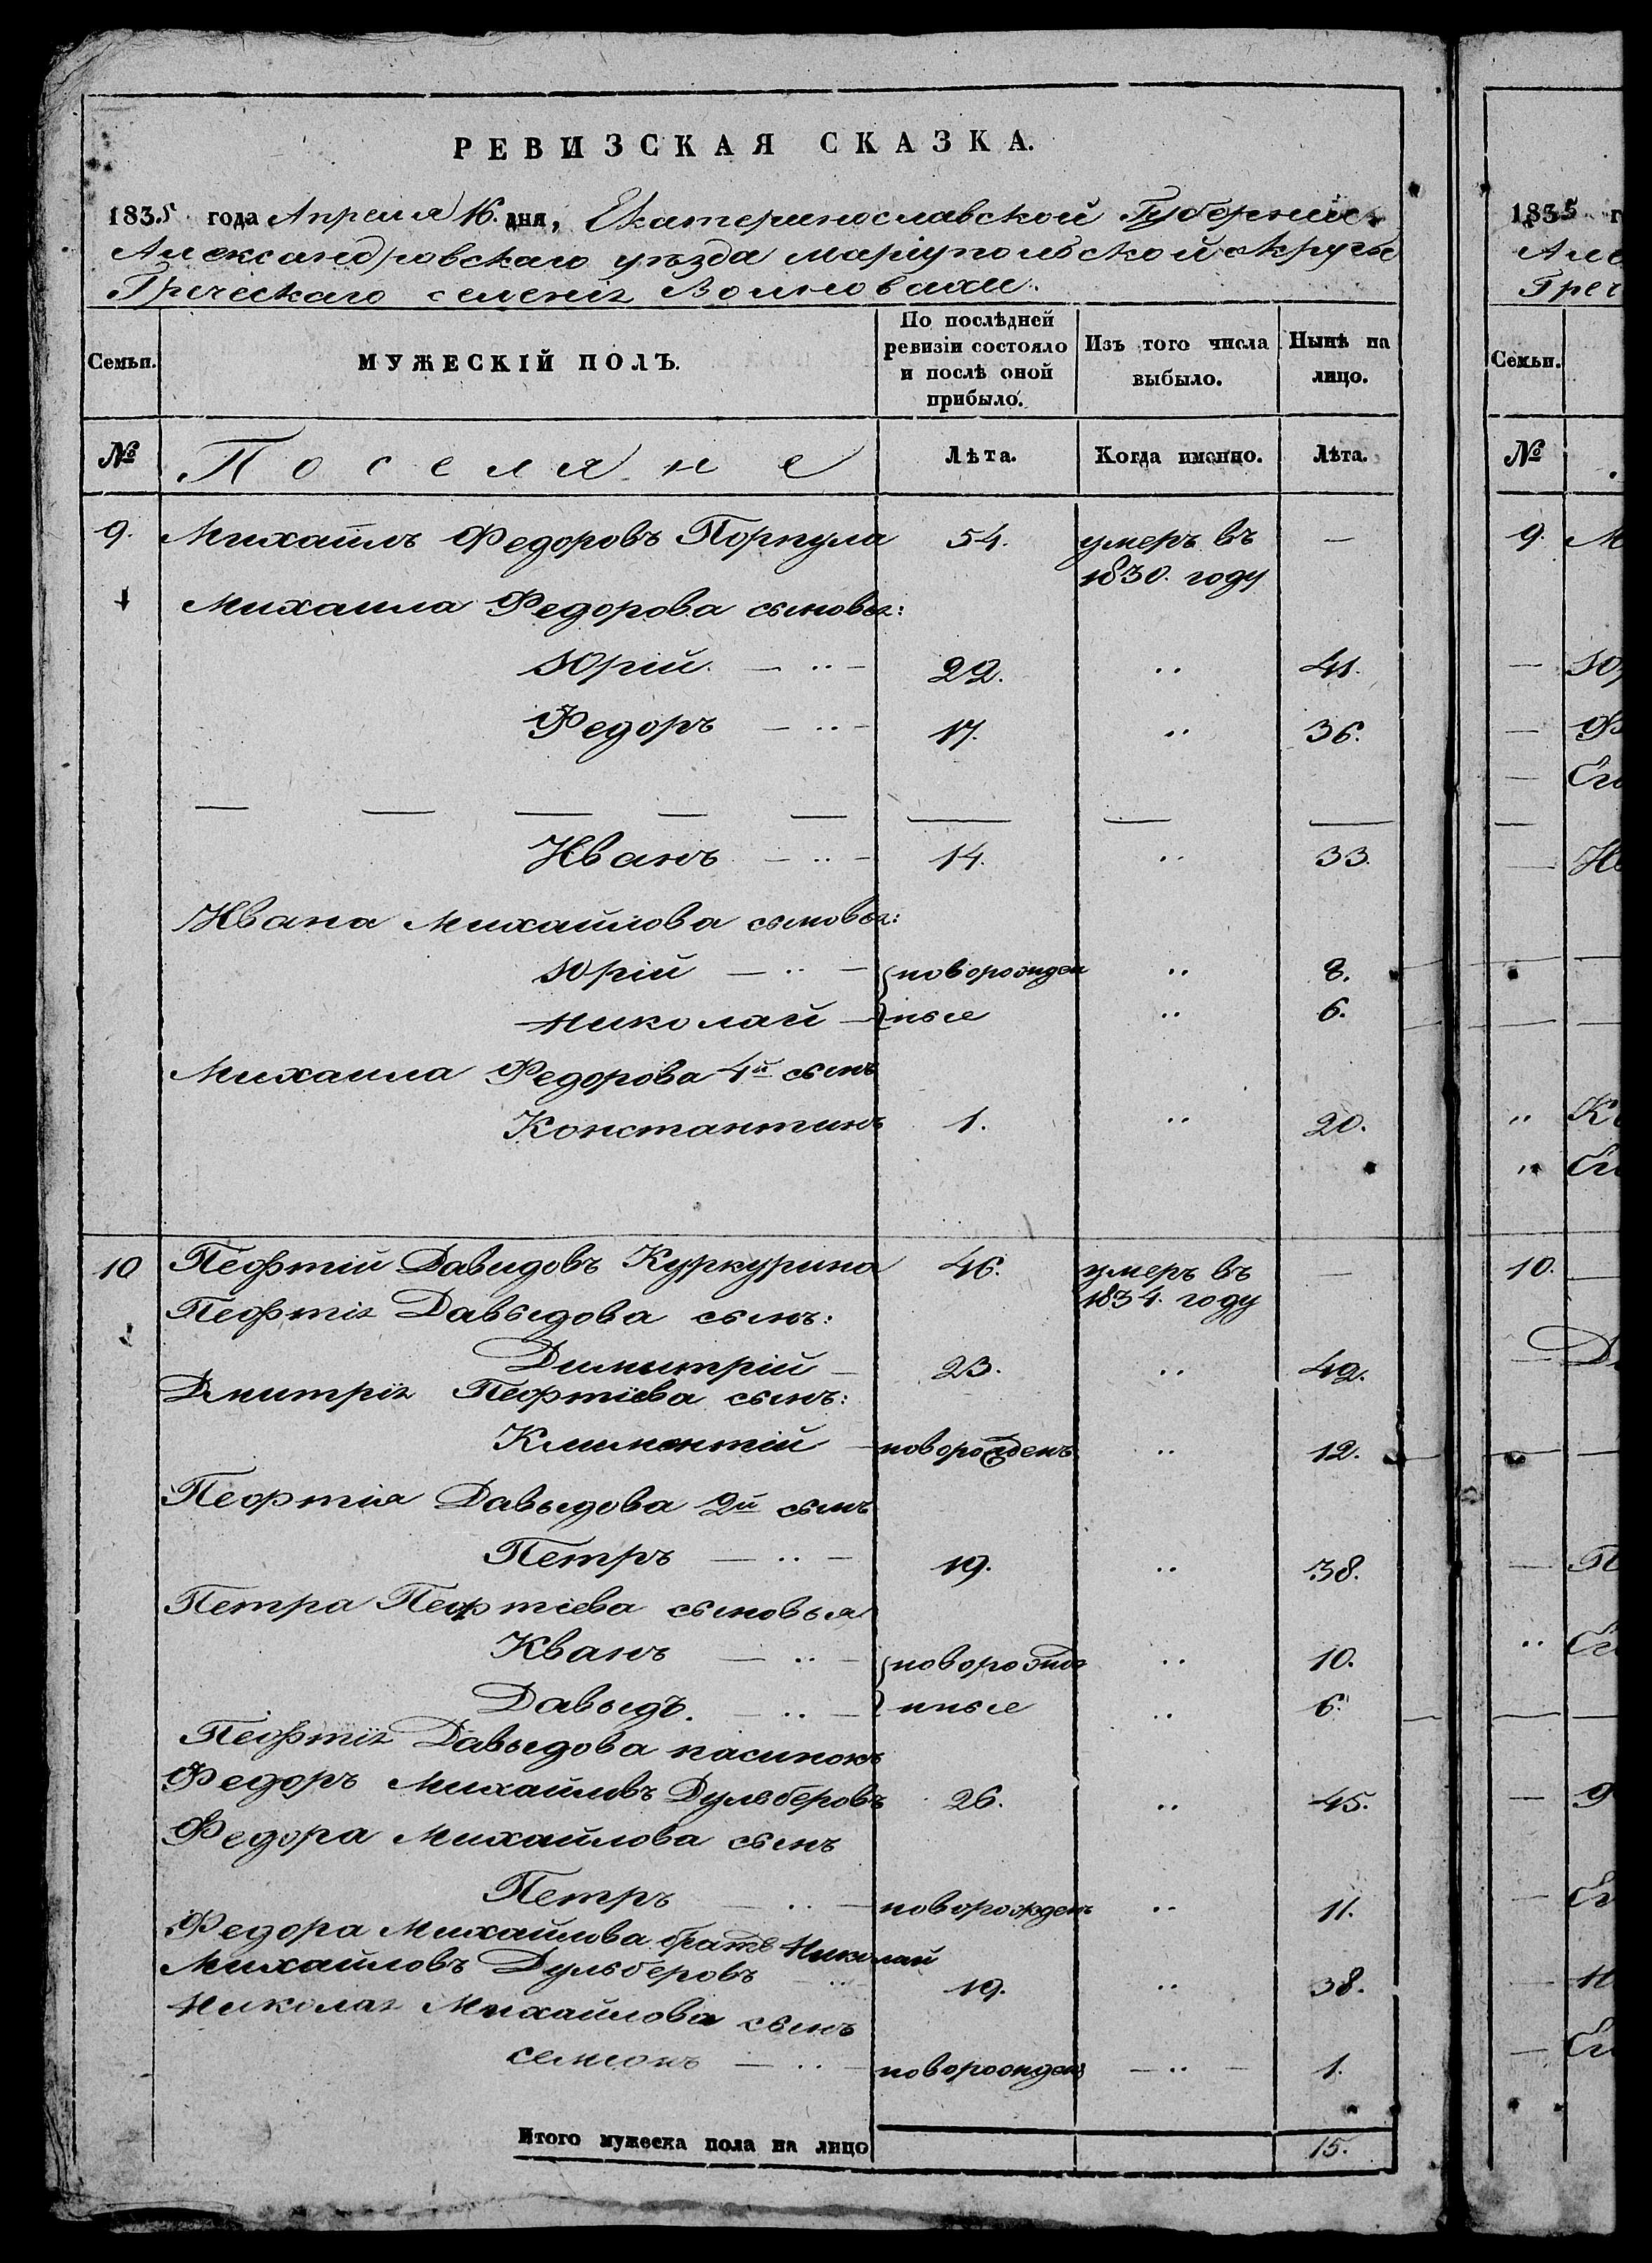 РЕВИЗСКАЯ СКАЗКА.
1835 года Апреля 16. дня, Екатеринославской Губерніи
Александровскаго уѣзда Маріупольской округи
Греческаго селенія Волновахи.
Семьи. МУЖЕСКІЙ ПОЛЪ. По послѣдней ревизіи состояло и послѣ оной прибыло. Изъ того числа выбыло. Нынѣ на лицо.
№ Поселяне Лѣта. Когда именно. Лѣта.
9. Михаилъ Федоровъ Порпула 54. умеръ въ 1830. году —
Михаила Федорова сыновья:
Юрій — .. — 22. .. 41.
Федоръ — .. — 17. .. 36.
— — — — — — — —
Иванъ — .. — 14. .. 33.
Ивана Михайлова сыновья:
Юрій — .. — новорожден .. 8.
Николай — ные .. 6.
Михаила Федорова 4й сынъ
Константинъ 1. .. 20.
10 Пефтій Давидовъ Куркурина 46. умеръ въ 1834. году —
Пефтія Давыдова сынъ:
Димитрій — 23. .. 42.
Дмитрія Пефтіева сынъ:
Климентій — новорожденъ .. 12.
Пефтія Давыдова 2й сынъ
Петръ — .. — 19. .. 38.
Петра Пефтіева сыновья
Иванъ — .. — новорожде .. 10.
Давыдъ. — .. — нные .. 6.
Пефтія Давыдова пасынокъ
Федоръ Михайловъ Дульберовъ 26. .. 45.
Федора Михайлова сынъ
Петръ — .. — новорожденъ .. 11.
Федора Михайлова братъ Николай
Михайловъ Дульберовъ — .. 19. .. 38.
Николая Михайлова сынъ
Семіонъ — .. — новорожденъ — .. — 1.
Итого мужеска пола на лицо 15.
1835 г
Але
Греч
Семьи.
№
9. М
— Юр
— Ф
— Ив
10.